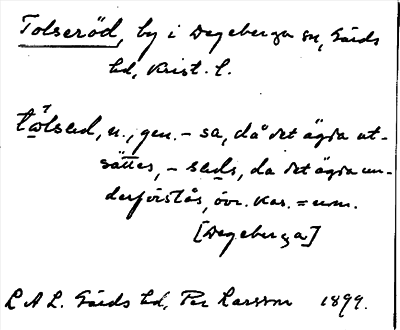 Tolseröd, by i Degeberga sn, Gärds
hd, Krist. l.
n., gen. - sa, då det ägda ut-
sättes, - da det ägda un-
derförstås, övr. kas. = nom.
[Degeberga]
L A L. Gärds hd, Per Larsson 1899.